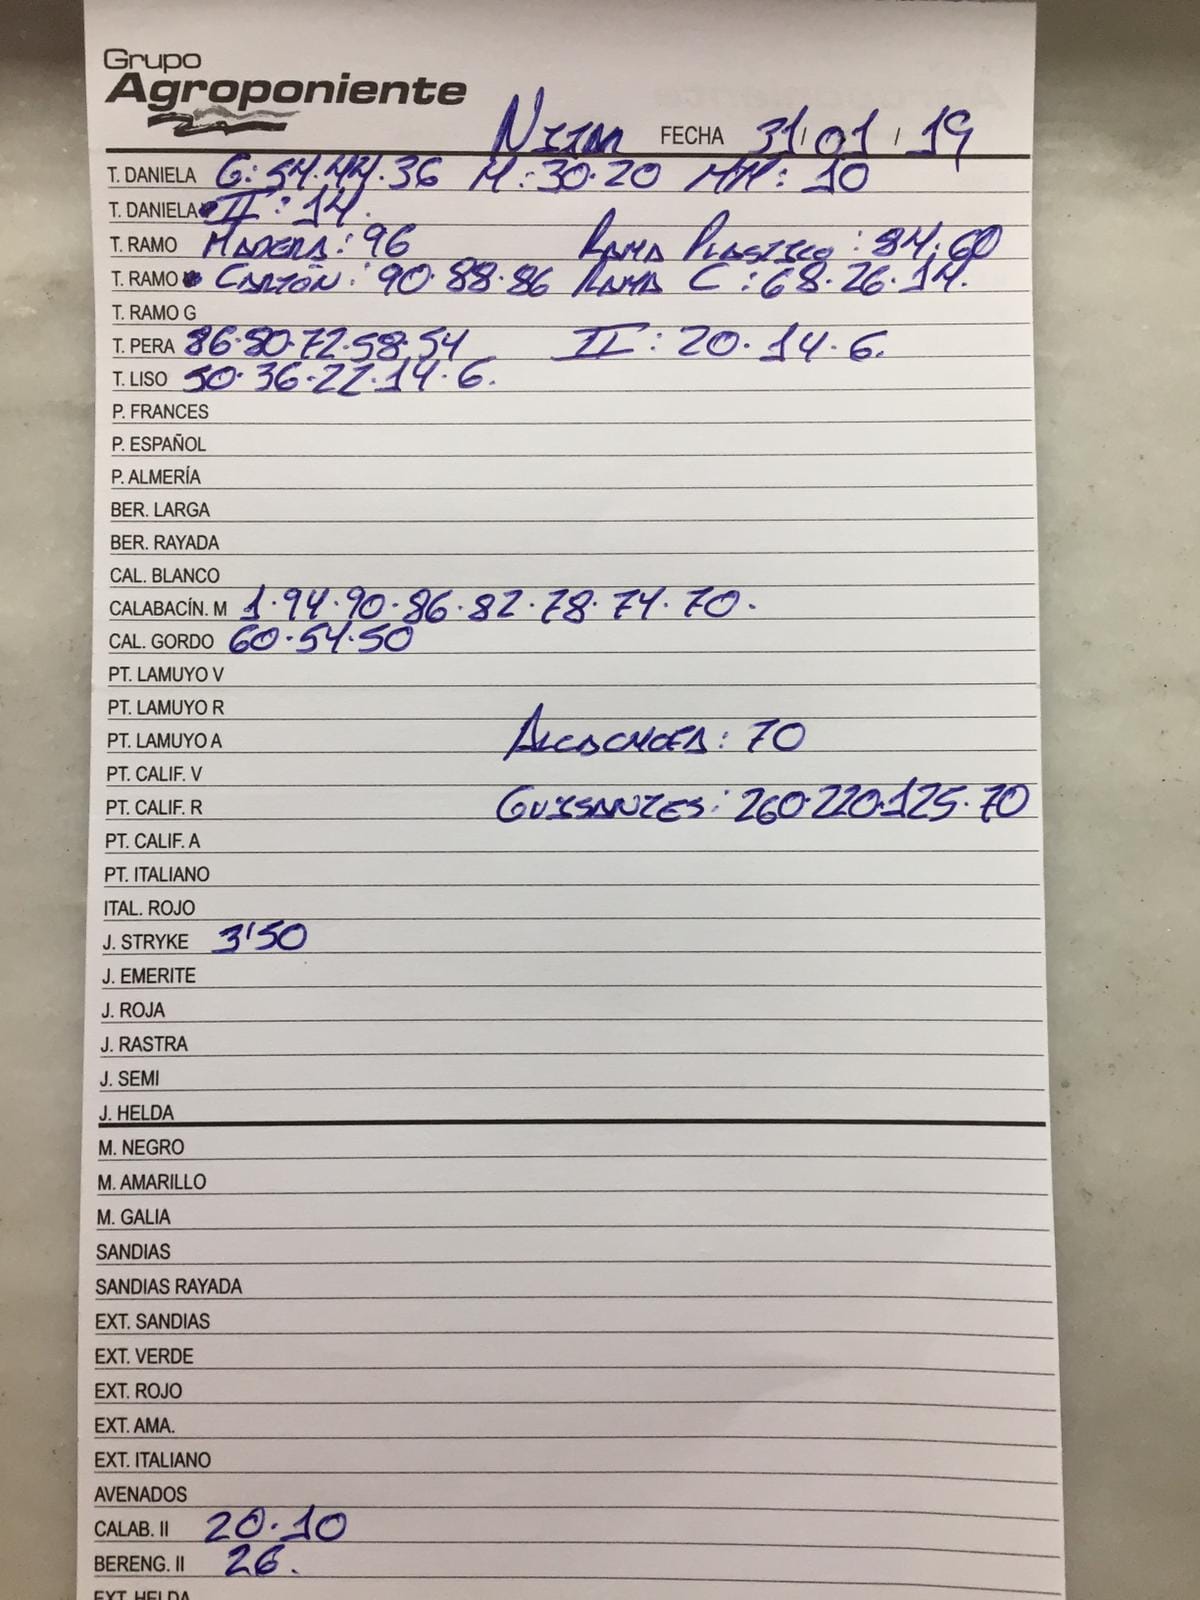 Grupo
Agroponiente
NIJAR FECHA 31/01/19
T. DANIELA G: 54.44.36 M: 30.20 MM: 10
T. DANIELA II: 14.
T. RAMO MADERA: 96 RAMA PLASTICO: 84.60
T. RAMO CARTÓN: 90.88.86 RAMA C: 68.26.14.
T. RAMO G
T. PERA 86.80.72.58.54 II: 20.14.6.
T. LISO 50.36.22.14.6.
P. FRANCES
P. ESPAÑOL
P. ALMERÍA
BER. LARGA
BER. RAYADA
CAL. BLANCO
CALABACÍN. M 1.94.90.86.82.78.74.70.
CAL. GORDO 60.54.50
PT. LAMUYO V
PT. LAMUYO R
PT. LAMUYO A ALCACHOFA: 70
PT. CALIF. V
PT. CALIF. R GUISANTES: 260.220.125.70
PT. CALIF. A
PT. ITALIANO
ITAL. ROJO
J. STRYKE 3'50
J. EMERITE
J. ROJA
J. RASTRA
J. SEMI
J. HELDA
M. NEGRO
M. AMARILLO
M. GALIA
SANDIAS
SANDIAS RAYADA
EXT. SANDIAS
EXT. VERDE
EXT. ROJO
EXT. AMA.
EXT. ITALIANO
AVENADOS
CALAB. II 20.10
BERENG. II 26.
EXT. HELDA